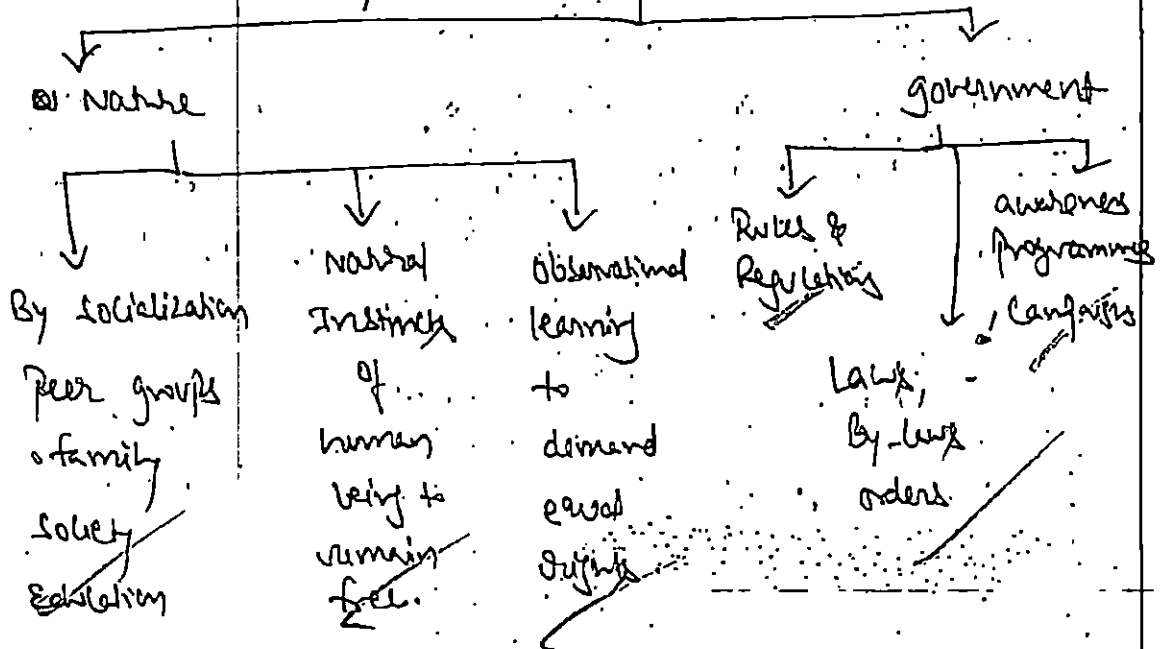 Nature
government
By Socialization
Peer groups
family
Society
Education
Natural
Instincts
of
human
being to
remain
free.
Observational
learning
to
demand
equal
rights
Rules &
Regulations
Laws,
By-laws
orders
awareness
Programmes
Campaigns